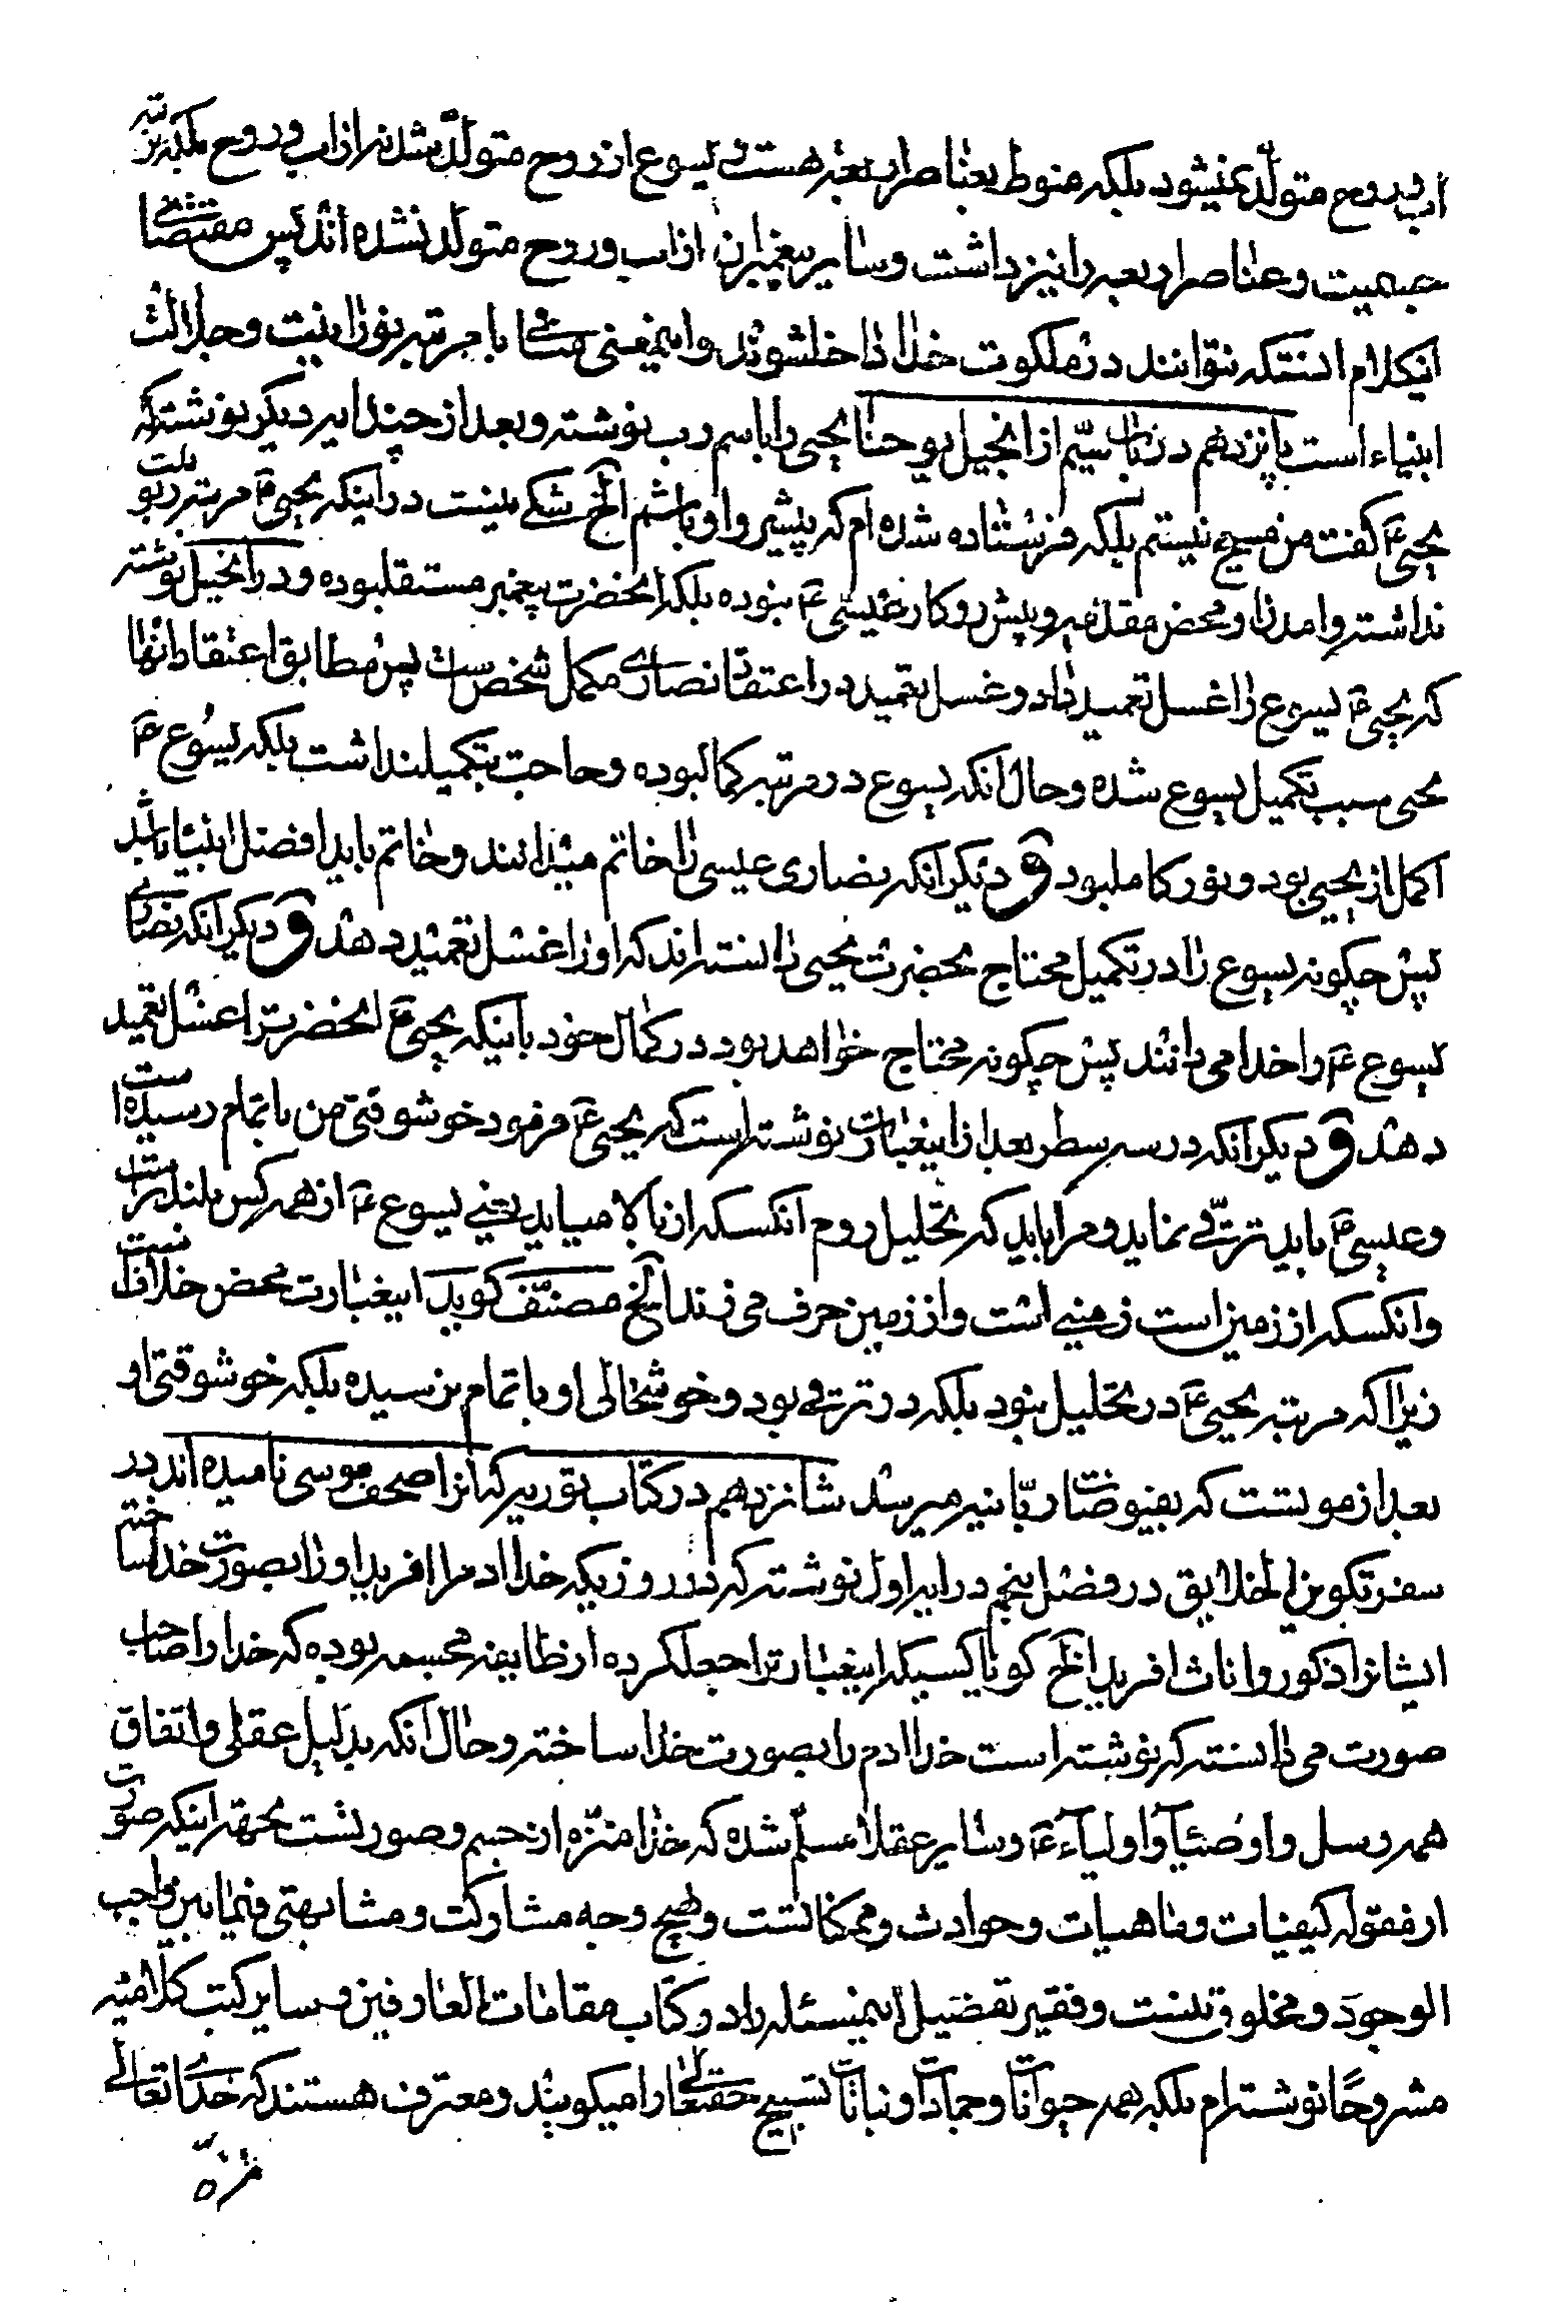 اب و روح متولد نمیشود بلکه منوط بعناصر اربعه هست و یسوع از روح متولد نشد نه از اب و روح بلکه بنیه
جسمیت و عناصر اربعه را نیز داشت و سایر پیغمبران از اب و روح متولد نشده اند پس مقتضای
اینکلام انستکه نتوانند در ملکوت خدا داخلشوند و اینمعنی منافی با مرتبه نورانیت و جلالت
انبیاء است پانزدهم در باب سیّم از انجیل یوحنا یحیی را باسم رب نوشته و بعد از چند ایه دیکر نوشته که
یحیی ع کفت من مسیح نیستم بلکه فرستاده شده ام که پیشرو او باشم الخ شکے نیست در اینکه یحیی ع مرتبه ربوبیت
نداشته و امدن او محض مقدمه و پیش رو کار عیسی ع نبوده بلکه انحضرت پیغمبر مستقلبوده و در انجیل نوشته
که یحیی ع یسوع را غسل تعمید داد و غسل تعمید در اعتقاد نصاری مکمل شخص است پس مطابق اعتقاد انها
یحیی سبب تکمیل یسوع شده و حال انکه یسوع در مرتبه کمالبوده و حاجت بتکمیلنداشت بلکه یسوع ع
اکمل از یحیی بود و نور کاملبود و دیکر انکه نصاری عیسی را خاتم میدانند و خاتم باید افضل انبیا باشد
پس چکونه یسوع را در تکمیل محتاج بحضرت یحیی دانسته اند که او را غسل تعمید دهد و دیکر انکه نصاری
یسوع ع را خدا می دانند پس چکونه محتاج خواهد بود در کمال خود باینکه یحیی ع انحضرترا غسل تعمید
دهد و دیکر انکه در سه سطر بعد از اینعبارت نوشته است که یحیی ع فرمود خوشوقتی من باتمام رسیده است
و عیسی ع باید ترقی نماید و مرا باید که تحلیل روم انکسکه از بالا میاید یعنے یسوع ع از همه کس بلندتر است
و انکسکه از زمین است زمینی است و از زمین حرف می زند الخ مصنّف کوید اینعبارت محض خلافست
زیرا که مرتبه یحیی ع در تحلیل نبود بلکه در ترقی بود و خوشحالی او باتمام نرسیده بلکه خوشوقتی او
بعد از موتست که بفیوضات ربّانیه میرسد شانزدهم در کتاب توریه که انرا صحف موسی نامیده اند در
سفر تکوین الخلایق در فصل پنجم در ایه اول نوشته که در روزیکه خدا ادم را افرید او را بصورت خدا ساخته
ایشانرا ذکور و اناث افرید الخ کویا کسیکه اینعبارترا جعلکرده از طایفه مجسمه بوده که خدا را صاحب
صورت می دانسته که نوشته است خدا ادم را بصورت خدا ساخته و حال انکه بدلیل عقلی و اتفاق
همه رسل و اوصیآء و اولیآء ع و سایر عقلا مسلّم شده که خدا منزّه از جسم و صورتست بجهة اینکه صورت
از مقوله کیفیات و ماهیات و حوادث و ممکناتست و هیچ وجه مشارکت و مشابهتی فیمابین واجب
الوجود و مخلوق نیست و فقیر تفصیل اینمسئله را در کتاب مقامات العارفین و سایر کتب کلامیّه
مشروحًا نوشته ام بلکه همه حیوانات و جمادات و نباتات تسبیح حقتعالی را میکویند و معترف هستند که خدای تعالے
منزّه